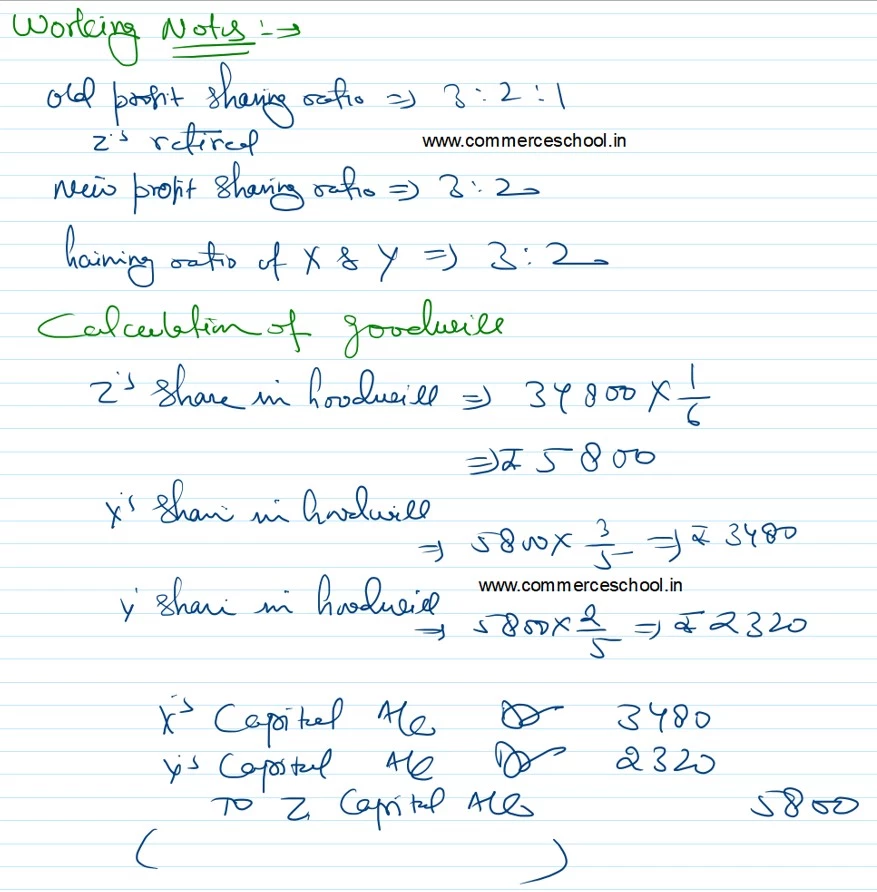 Working Notes :→
old profit sharing ratio ⇒ 3 : 2 : 1
Z's retired
www.commerceschool.in
New profit sharing ratio ⇒ 3 : 2
Gaining ratio of X & Y ⇒ 3 : 2
Calculation of goodwill
Z's share in Goodwill ⇒ 34800 × 1/6
⇒ ₹ 5800
X's share in Goodwill
⇒ 5800 × 3/5 ⇒ ₹ 3480
Y share in Goodwill
www.commerceschool.in
⇒ 5800 × 2/5 ⇒ ₹ 2320
X's Capital A/c Dr 3480
Y's Capital A/c Dr 2320
To Z Capital A/c 5800
( )